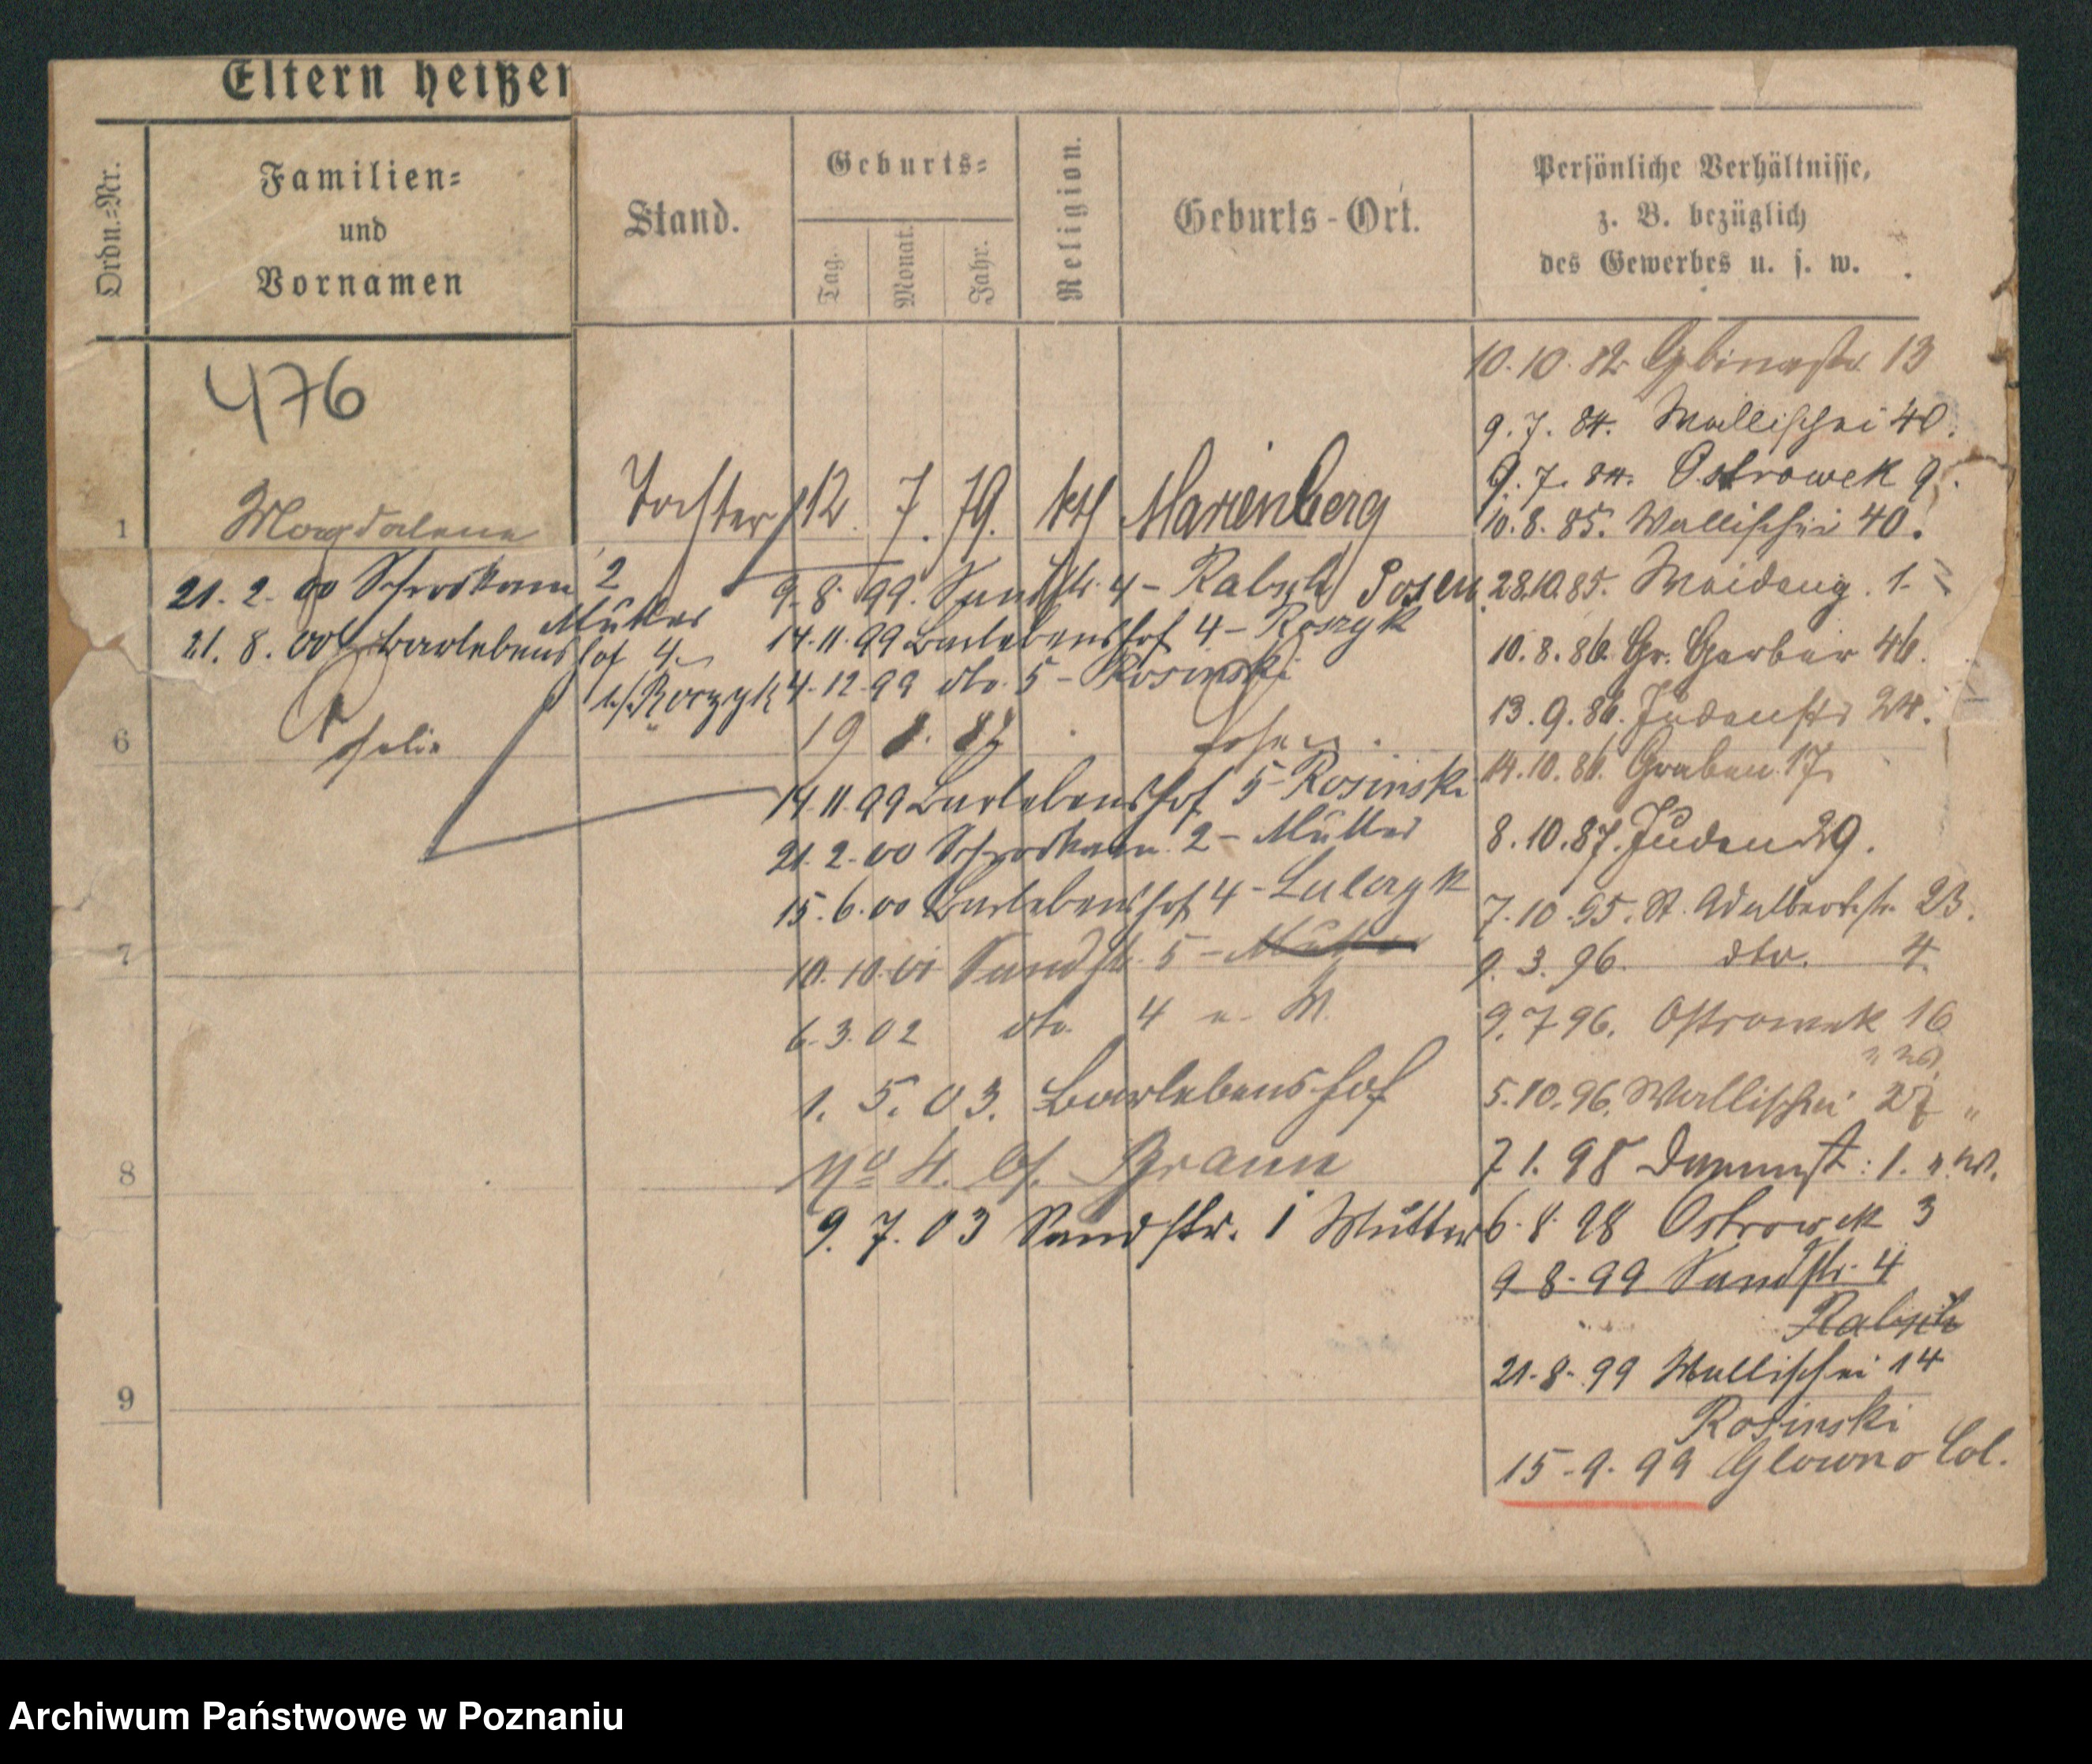 Eltern heißen
Ordn.=Nr.
Familien=
und
Vornamen
Stand.
Geburts=
Tag.
Monat.
Jahr.
Religion.
Geburts-Ort.
Persönliche Verhältnisse,
z. B. bezüglich
des Gewerbes u. s. w.
476
1 Magdalena Tochter 12. 7. 79. kth Marienberg
10.10.82
13
9.7.84. Wallischei 40.
9.7.84. Ostrowek 9.
10.8.85. Wallischei 40.
28.10.85. 1.
10.8.86. Gr. Gerber 46.
13.9.86. Judenstr 24.
14.10.86. Graben 17
8.10.87. Juden 29.
7.10.95. St. Adalbertstr. 23.
9.3.96. dto. 4.
9.7 96. Ostrowek 16
5.10.96. Wallischei 27 "
7 1. 98 1. u. W.
6.8.98 Ostrowek 3
9-8-99 Sandstr. 4
Rabsch
21-8-99 Wallischei 14
Rosinski
15-9-99 Glowno Col.
21.2.00 2
Mutter
21.8.00 Barlebenshof 4
9.8.99. Sandstr. 4 - Rabsch Posen
14.11.99 Barlebenshof 4 -
4-12-99 dto. 5 - Rosinski
6 19 8. 87 Posen.
14.11.99 Barlebenshof 5 - Rosinski
21.2.00 2 - Mutter
15.6.00 Barlebenshof 4 -
7
10.10.01 Sandstr. 5 - Mutter
6.3.02 dto. 4 u. W.
1. 5. 03. Barlebenshof
8 No 4. bf. Braun
9. 7. 03 Sandstr. 1 Mutter
9
Archiwum Państwowe w Poznaniu